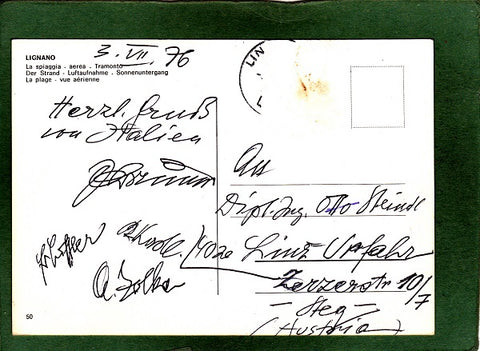 LIGNANO
La spiaggia - aerea - Tramonto
Der Strand - Luftaufnahme - Sonnenuntergang
La plage - vue aérienne
3. VII. 76
LIN
Herzl. Gruß
von Italien
An
Dipl. Ing. Otto Steindl
4020 Linz Urfahr
10/7
- Steg -
(Austria)
50